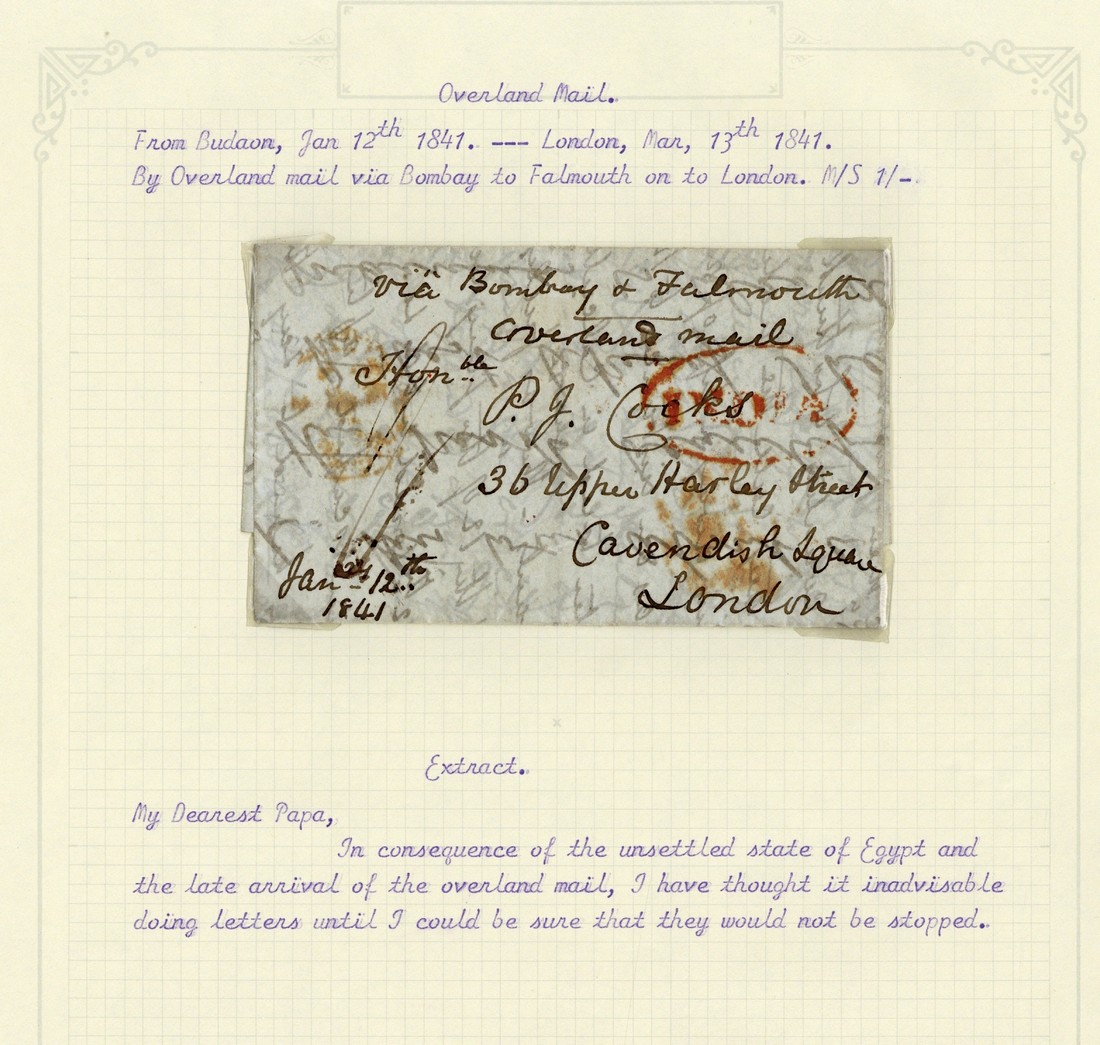 Overland Mail.
From Budaon, Jan 12th 1841. --- London, Mar, 13th 1841.
By Overland mail via Bombay to Falmouth on to London. M/S 1/-.
via Bombay & Falmouth
overland mail
Honble
P. J. Cocks
INDIA
36 Upper Harley Street
Cavendish Square
London
Jany 12th
1841
Extract.
My Dearest Papa,
In consequence of the unsettled state of Egypt and
the late arrival of the overland mail, I have thought it inadvisable
doing letters until I could be sure that they would not be stopped.